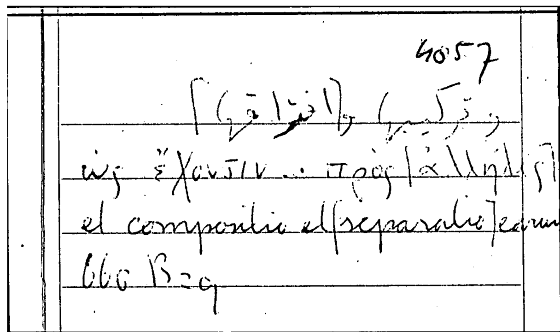 4057
وتركيبها و[افتراقها]
ὡς ἔχουσιν ... πρὸς [ἀλλήλας]
et compositio et [separatio] earum